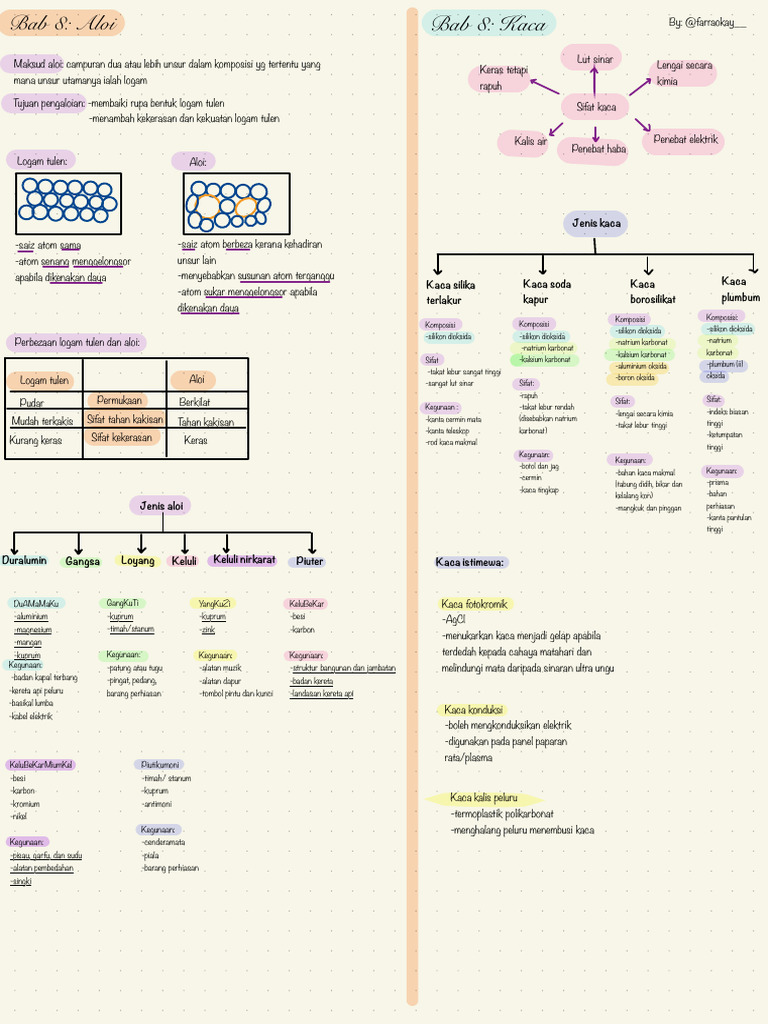 Bab 8: Aloi
Maksud aloi: campuran dua atau lebih unsur dalam komposisi yg tertentu yang
mana unsur utamanya ialah logam
Tujuan pengaloian: -membaiki rupa bentuk logam tulen
-menambah kekerasan dan kekuatan logam tulen
Logam tulen:
-saiz atom sama
-atom senang menggelongsor
apabila dikenakan daya
Aloi:
-saiz atom berbeza kerana kehadiran
unsur lain
-menyebabkan susunan atom terganggu
-atom sukar menggelongsor apabila
dikenakan daya
Perbezaan logam tulen dan aloi:
Logam tulen Aloi
Pudar Permukaan Berkilat
Mudah terkakis Sifat tahan kakisan Tahan kakisan
Kurang keras Sifat kekerasan Keras
Jenis aloi
Duralumin Gangsa Loyang Keluli Keluli nirkarat Piuter
DuAMaMaKu
-aluminium
-magnesium
-mangan
-kuprum
Kegunaan:
-badan kapal terbang
-kereta api peluru
-basikal lumba
-kabel elektrik
GangKuTi
-kuprum
-timah/stanum
Kegunaan:
-patung atau tugu
-pingat, pedang,
barang perhiasan
YangKuZi
-kuprum
-zink
Kegunaan:
-alatan muzik
-alatan dapur
-tombol pintu dan kunci
KeluBeKar
-besi
-karbon
Kegunaan:
-struktur bangunan dan jambatan
-badan kereta
-landasan kereta api
KeluBeKarMiumKel
-besi
-karbon
-kromium
-nikel
Kegunaan:
-pisau, garfu, dan sudu
-alatan pembedahan
-singki
Piutikumoni
-timah/ stanum
-kuprum
-antimoni
Kegunaan:
-cenderamata
-piala
-barang perhiasan
Bab 8: Kaca
By: @farraokay__
Lut sinar
Keras tetapi
rapuh
Lengai secara
kimia
Sifat kaca
Kalis air
Penebat haba
Penebat elektrik
Jenis kaca
Kaca silika
terlakur
Komposisi
-silikon dioksida
Sifat
-takat lebur sangat tinggi
-sangat lut sinar
Kegunaan :
-kanta cermin mata
-kanta teleskop
-rod kaca makmal
Kaca soda
kapur
Komposisi
-silikon dioksida
-natrium karbonat
-kalsium karbonat
Sifat:
-rapuh
-takat lebur rendah
(disebabkan natrium
karbonat)
Kegunaan:
-botol dan jag
-cermin
-kaca tingkap
Kaca
borosilikat
Komposisi
-silikon dioksida
-natrium karbonat
-kalsium karbonat
-aluminium oksida
-boron oksida
Sifat:
-lengai secara kimia
-takat lebur tinggi
Kegunaan:
-bahan kaca makmal
(tabung didih, bikar dan
kelalang kon)
-mangkuk dan pinggan
Kaca
plumbum
Komposisi:
-silikon dioksida
-natrium
karbonat
-plumbum (ii)
oksida
Sifat:
-indeks biasan
tinggi
-ketumpatan
tinggi
Kegunaan:
-prisma
-bahan
perhiasan
-kanta pantulan
tinggi
Kaca istimewa:
Kaca fotokromik
-AgCl
-menukarkan kaca menjadi gelap apabila
terdedah kepada cahaya matahari dan
melindungi mata daripada sinaran ultra ungu
Kaca konduksi
-boleh mengkonduksikan elektrik
-digunakan pada panel paparan
rata/plasma
Kaca kalis peluru
-termoplastik polikarbonat
-menghalang peluru menembusi kaca